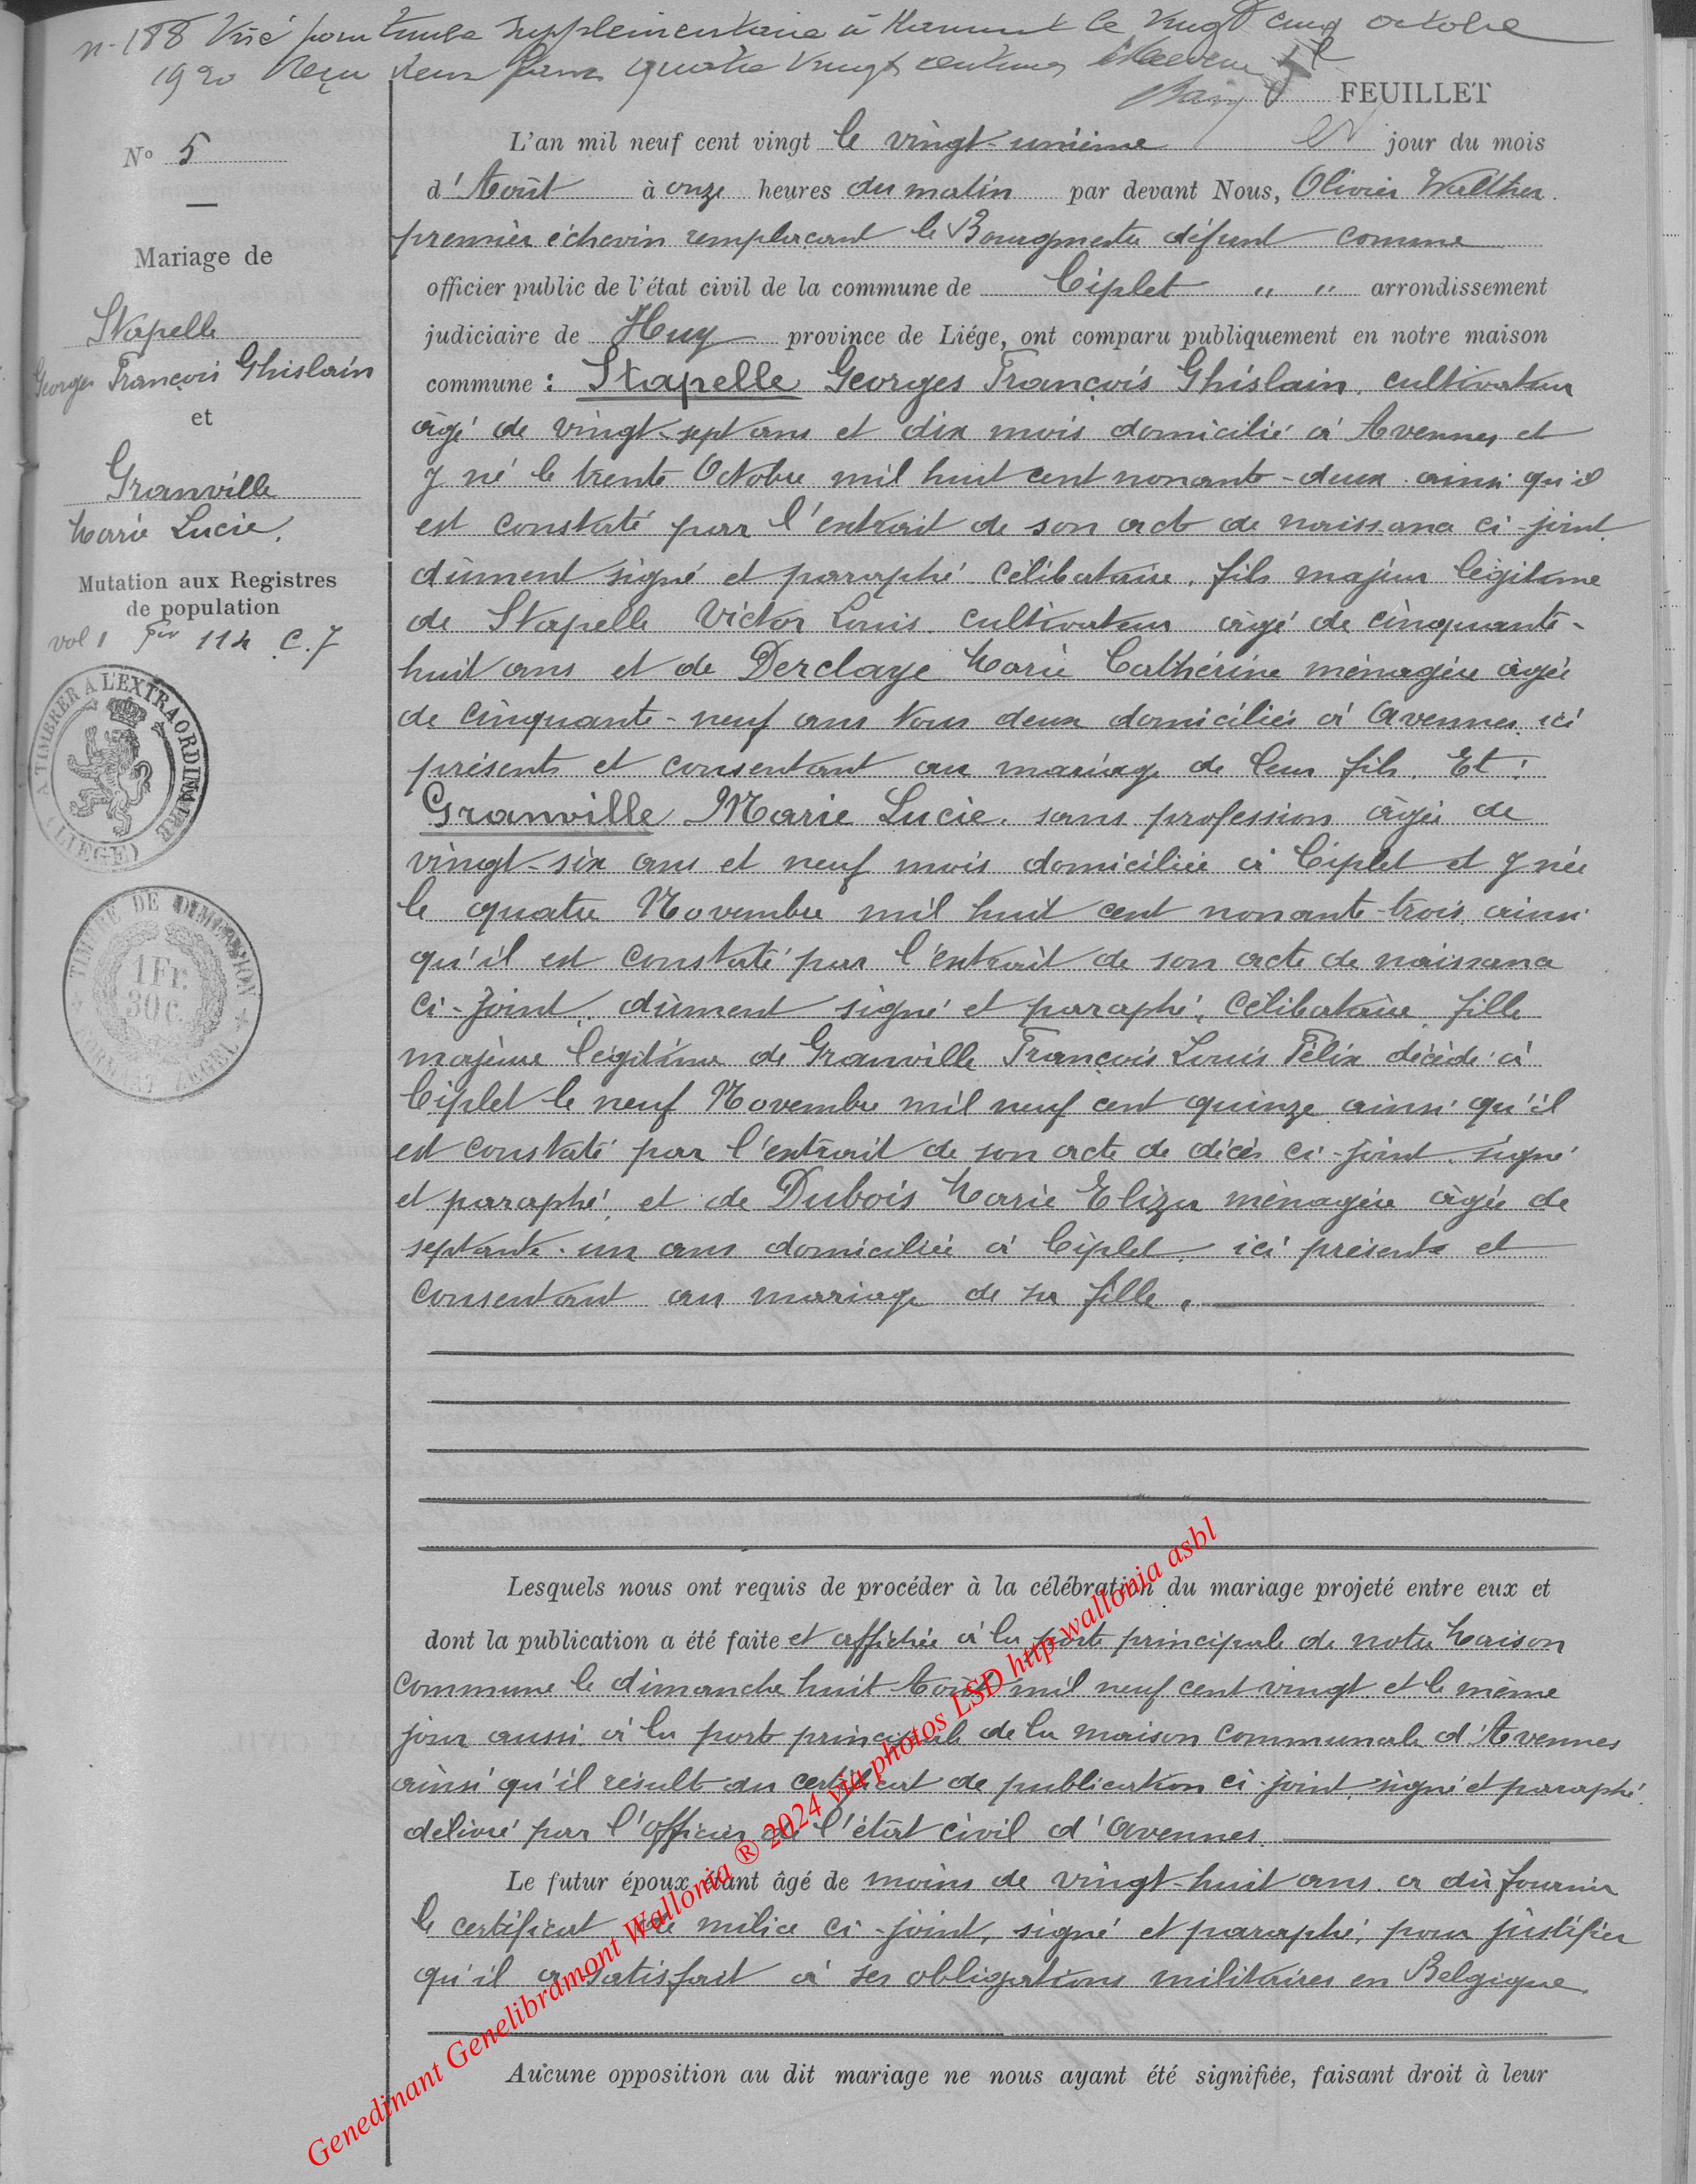 n° 188 Visé pour timbre supplémentaire à Hannut le vingt cinq octobre
1920 Reçu deux francs quatre vingt centimes
FEUILLET
N° 5
Mariage de
Stapelle
Georges François Ghislain
et
Granville
Marie Lucie.
Mutation aux Registres
de population
vol 1 114 C. 7
A TIMBRER A L'EXTRAORDINAIRE
(LIEGE)
TIMBRE DE DIMENSION
1 Fr.
30 c.
L'an mil neuf cent vingt le vingt-unième jour du mois
d'Août à onze heures du matin par devant Nous, Olivier Walther
premier échevin remplaçant le Bourgmestre défunt comme
officier public de l'état civil de la commune de Ciplet " " arrondissement
judiciaire de Huy province de Liége, ont comparu publiquement en notre maison
commune : Stapelle Georges François Ghislain, cultivateur
âgé de vingt-sept ans et dix mois domicilié à Avennes et
y né le trente Octobre mil huit cent nonante-deux ainsi qu'il
est constaté par l'extrait de son acte de naissance ci-joint
dûment signé et paraphé. célibataire, fils majeur légitime
de Stapelle Victor Louis cultivateur âgé de cinquante-
huit ans et de Derclaye Marie Cathérine ménagère âgée
de cinquante-neuf ans tous deux domiciliés à Avennes ici
présents et consentant au mariage de leur fils. Et :
Granville Marie Lucie. sans profession âgée de
vingt-six ans et neuf mois domiciliée à Ciplet et y née
le quatre Novembre mil huit cent nonante-trois, ainsi
qu'il est constaté par l'extrait de son acte de naissance
ci-joint, dûment signé et paraphé, célibataire, fille
majeure légitime de Granville François Louis Félix décédé à
Ciplet le neuf Novembre mil neuf cent quinze ainsi qu'il
est constaté par l'extrait de son acte de décès ci-joint signé
et paraphé, et de Dubois Marie Eliza ménagère âgée de
septante-un ans domiciliée à Ciplet, ici présente et
consentant au mariage de sa fille.
Lesquels nous ont requis de procéder à la célébration du mariage projeté entre eux et
dont la publication a été faite et affichée à la porte principale de notre Maison
commune le dimanche huit Août mil neuf cent vingt et le même
jour aussi à la porte principale de la maison communale d'Avennes
ainsi qu'il résulte du certificat de publication ci-joint signé et paraphé
délivré par l'officier de l'état civil d'Avennes.
Le futur époux étant âgé de moins de vingt-huit ans a dû fournir
le certificat de milice ci-joint, signé et paraphé, pour justifier
qu'il a satisfait à ses obligations militaires en Belgique
Aucune opposition au dit mariage ne nous ayant été signifiée, faisant droit à leur
Genedinant Genelibramont Wallonia ® 2024 via photos LSD http wallonia asbl